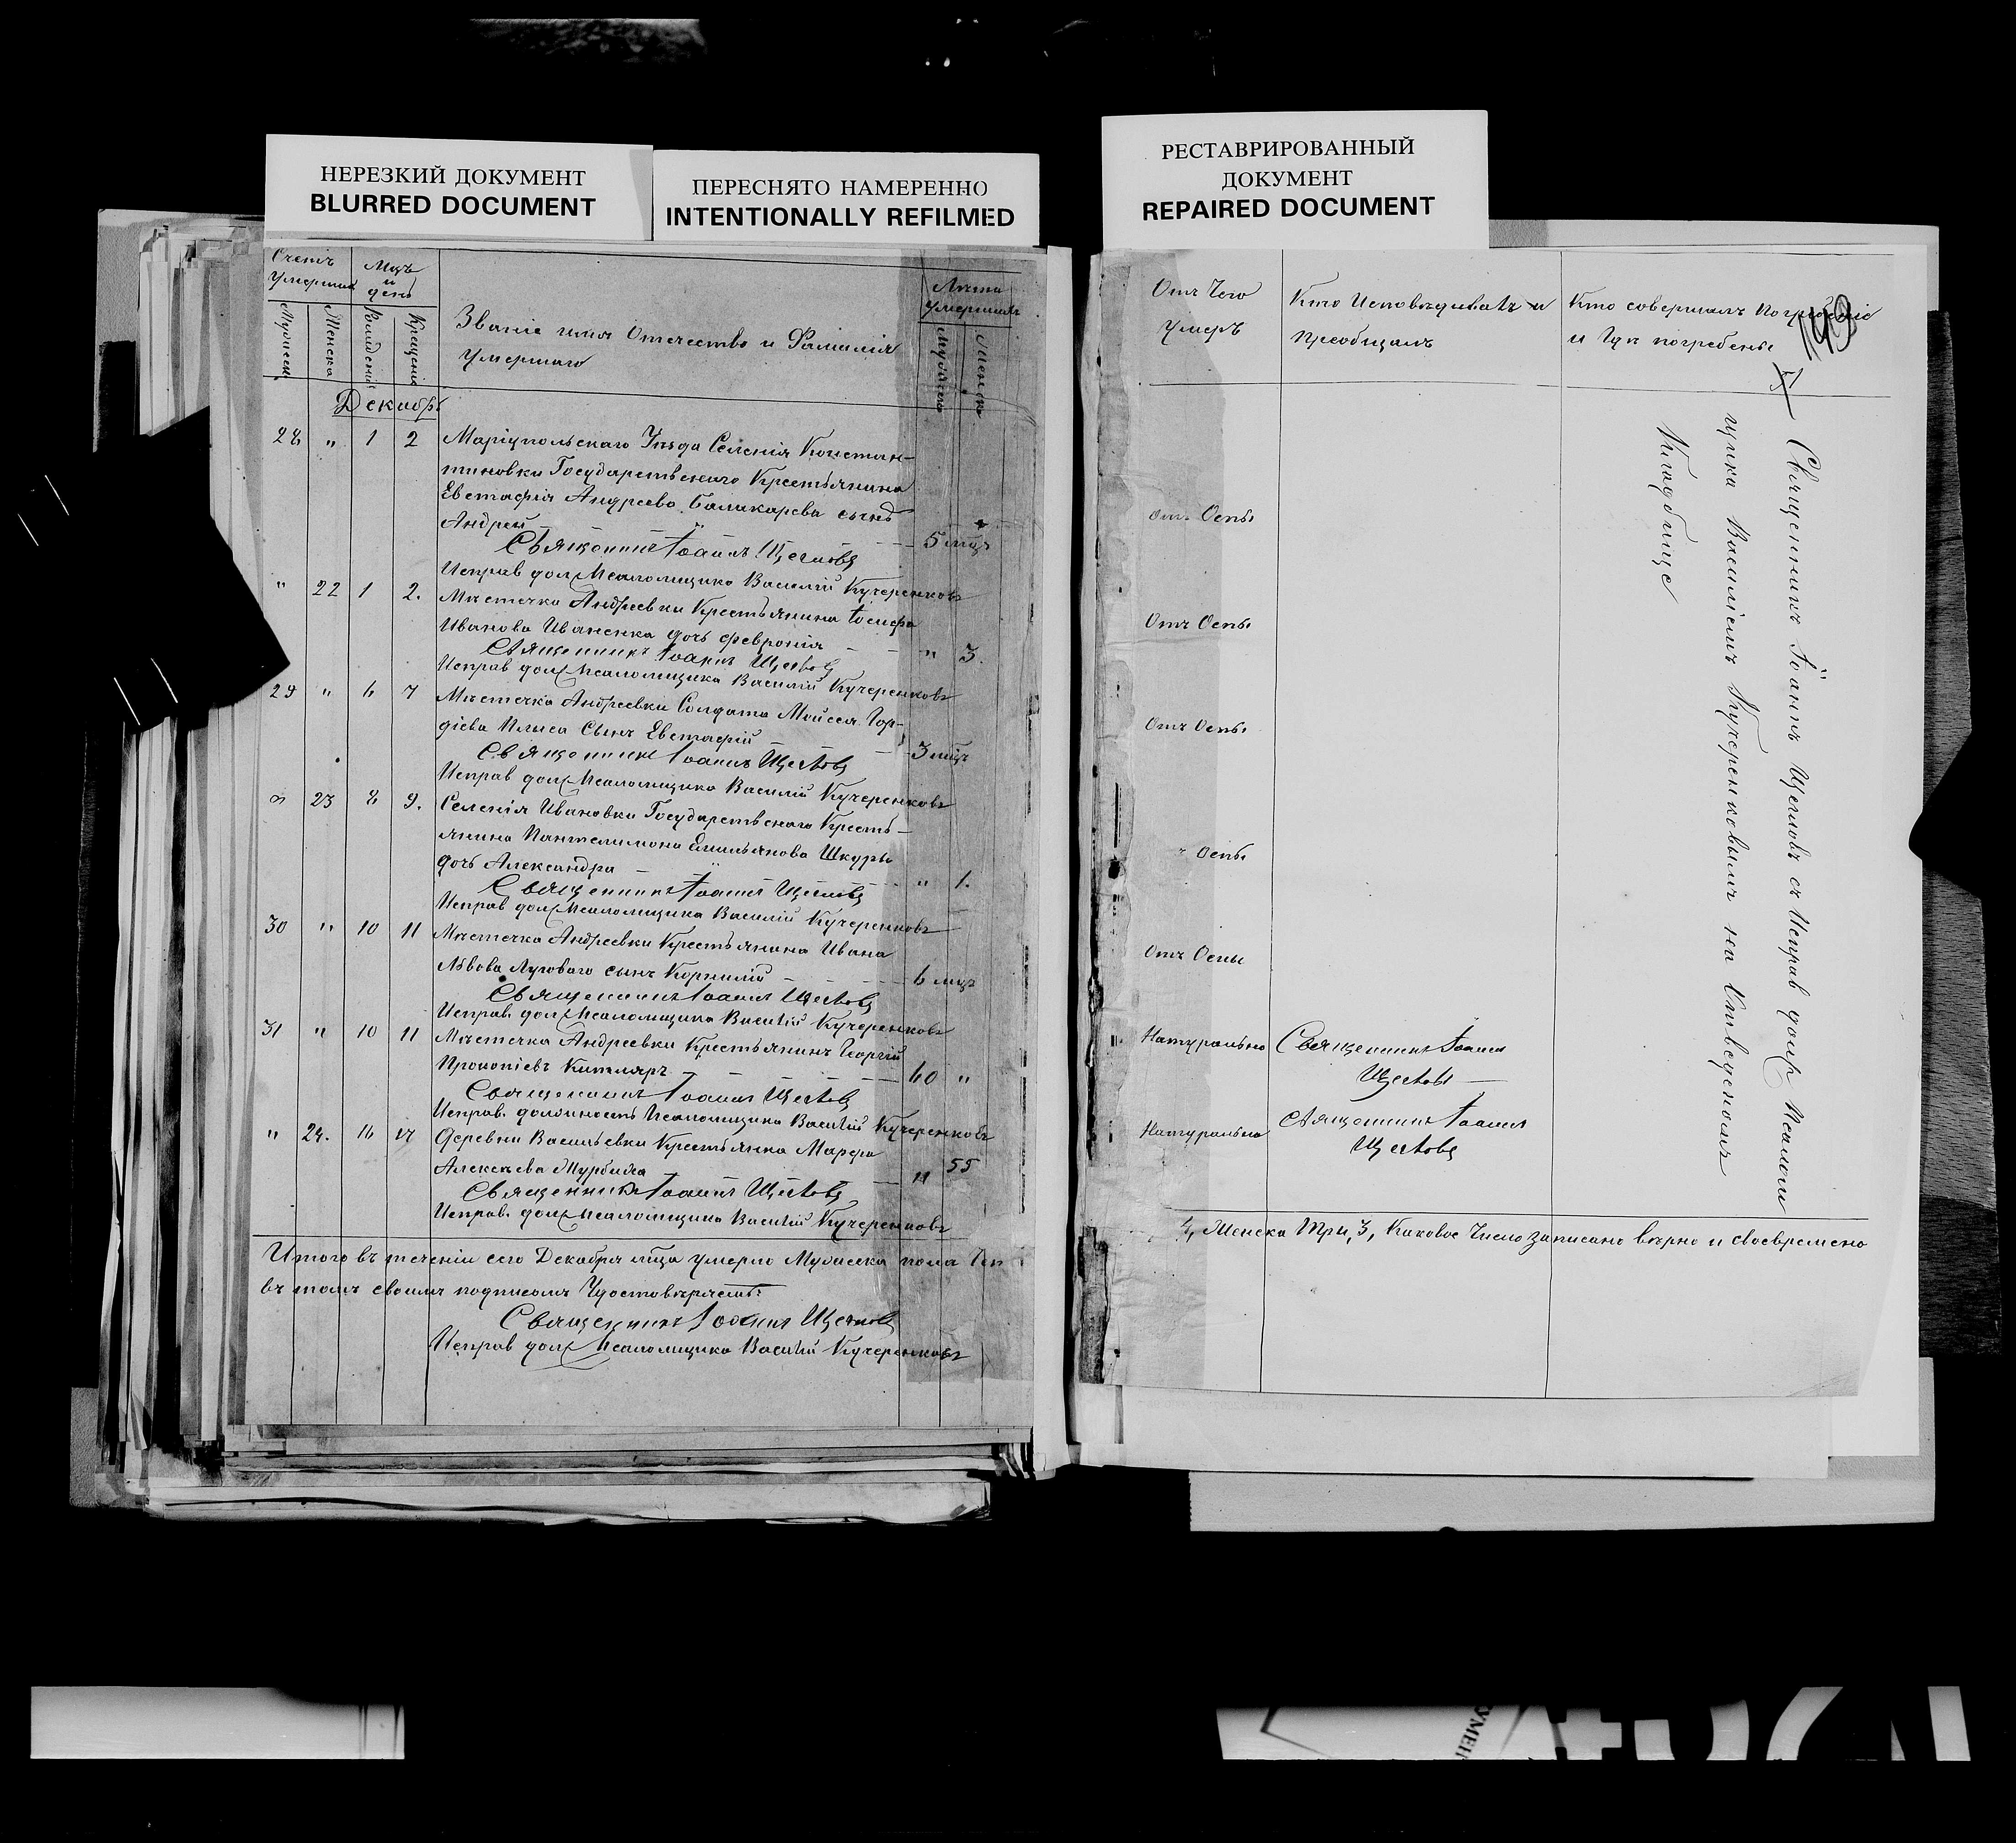 НЕРЕЗКИЙ ДОКУМЕНТ
BLURRED DOCUMENT
ПЕРЕСНЯТО НАМЕРЕННО
INTENTIONALLY REFILMED
РЕСТАВРИРОВАННЫЙ
ДОКУМЕНТ
REPAIRED DOCUMENT
Счетъ Умершихъ
Мужеска
Женска
Мцъ и день
Рожденія
Крещенія
Званіе имя Отечество и Фамилія
Умершаго
Лѣта Умершихъ
Мужеска
Женска
Декабрь
28 " 1 2 Маріупольскаго Уѣзда Селенія Констан-
тиновки Государственнаго Крестьянина
Евстафія Андреева Баликарева сынъ
Андрей 5 мцъ
Священникъ Іоаннъ Щегловъ
Исправ долж Псаломщика Василій Кучеренковъ
" 22 1 2. Мѣстечка Андреевки Крестьянина Іосифа
Иванова Иваненка дочь Февронія " 3.
Священникъ Іоаннъ Щегловъ
Исправ долж Псаломщика Василій Кучеренковъ
29 " 6 7 Мѣстечка Андреевки Солдата Мойсея Гор-
діева Плыса Сынъ Евстафій 3 мцъ
Священникъ Іоаннъ Щегловъ
Исправ долж Псаломщика Василій Кучеренковъ
" 23 8 9. Селенія Ивановки Государственнаго Кресть-
янина Пантелимона Емильянова Шкуры
дочь Александра " 1.
Священникъ Іоаннъ Щегловъ
Исправ долж Псаломщика Василій Кучеренковъ
30 " 10 11 Мѣстечка Андреевки Крестьянина Ивана
Львова Луговаго сынъ Корнилій 6 мцъ
Священникъ Іоаннъ Щегловъ
Исправ. долж Псаломщика Василій Кучеренковъ
31 " 10 11 Мѣстечка Андреевки Крестьянинъ Георгій
Прокопіевъ 60 "
Священникъ Іоаннъ Щегловъ
Исправ. должность Псаломщика Василій Кучеренковъ
" 24. 16 17 Деревни Васильевки Крестьянка Марфа
Алексѣева " 55
Священникъ Іоаннъ Щегловъ
Исправ. долж Псаломщика Василій Кучеренковъ
Итого въ теченіи сего Декабря мца умерло Мужеска пола
въ томъ своимъ подписомъ Удостовѣряемъ:
Священникъ Іоаннъ Щегловъ
Исправ долж Псаломщика Василій Кучеренковъ
Отъ Чего
умеръ
Кто Исповѣдивалъ и
преобщалъ
Кто совершалъ Погребеніе
и Гдѣ погребены
Отъ Оспы
Отъ Оспы
Отъ Оспы
Оспы
Отъ Оспы
Натурально Священникъ Іоаннъ
Щегловъ
Натурально Священникъ Іоаннъ
Щегловъ
Священникъ Іоаннъ Щегловъ съ Исправ долж Псаломщика
щика Василіемъ Кучеренковымъ на Отведеномъ
Кладбище
4, Женска Три, 3, Каковое Число записано вѣрно и своевремено